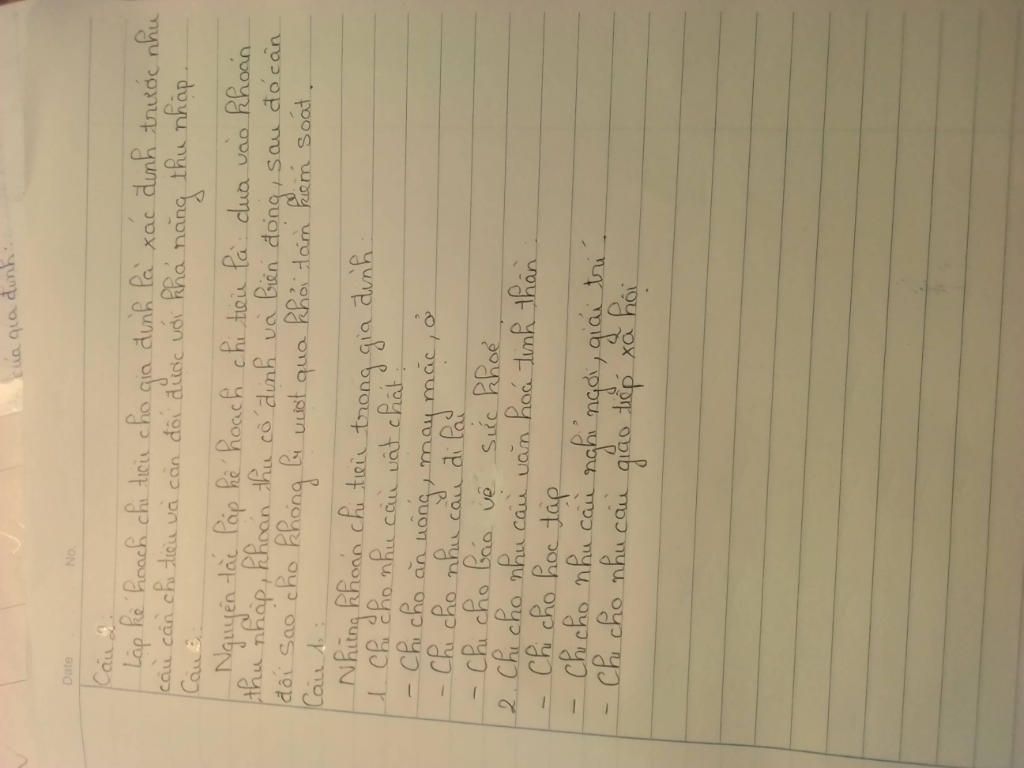 của gia đình.
Date No.
Câu 2:
Lập kế hoạch chi tiêu cho gia đình là xác định trước nhu
cầu cần chi tiêu và cân đối được với khả năng thu nhập.
Câu 3:
Nguyên tắc lập kế hoạch chi tiêu là: dựa vào khoản
thu nhập, khoản thu cố định và biến động, sau đó cân
đối sao cho không bị vượt qua khỏi tầm kiểm soát.
Câu 1:
Những khoản chi tiêu trong gia đình
1. Chi cho nhu cầu vật chất
- Chi cho ăn uống, may mặc, ở
- Chi cho nhu cầu đi lại
- Chi cho bảo vệ sức khoẻ
2. Chi cho nhu cầu văn hoá tinh thần.
- Chi cho học tập
- Chi cho nhu cầu nghỉ ngơi, giải trí.
- Chi cho nhu cầu giao tiếp xã hội